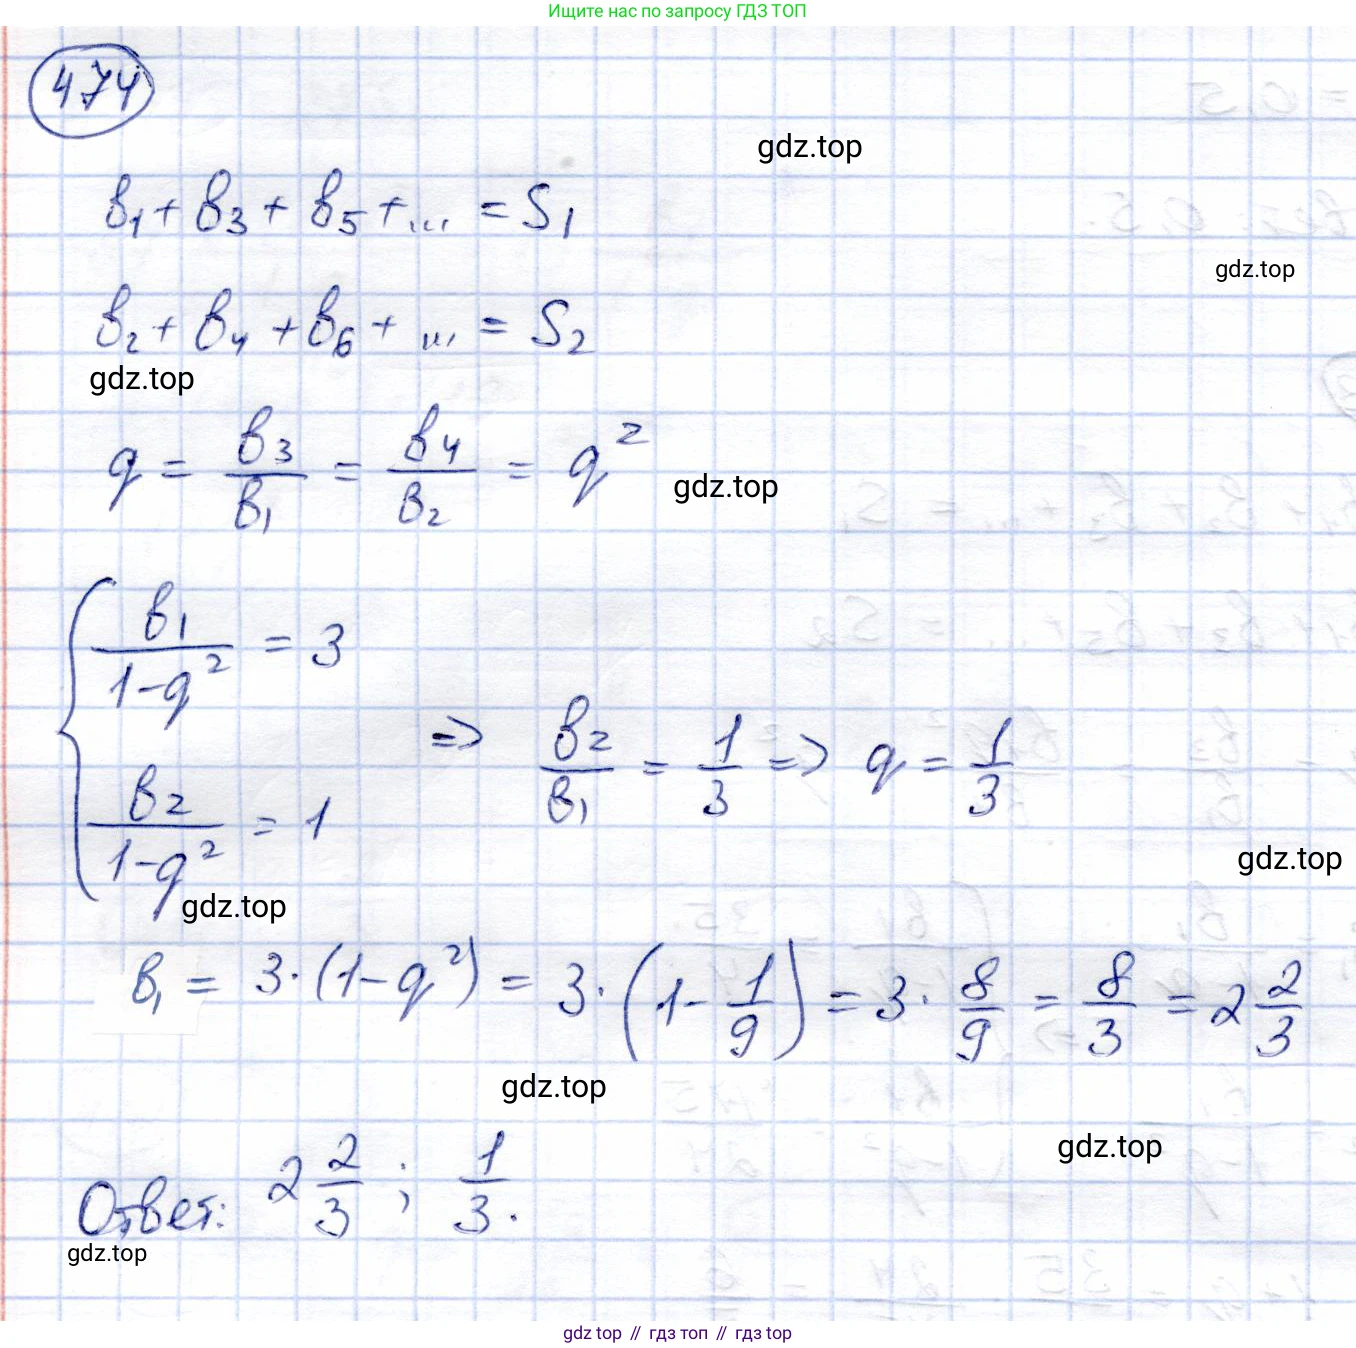 Ищите нас по запросу ГДЗ ТОП
474
gdz.top
b₁ + b₃ + b₅ + ... = S₁
gdz.top
b₂ + b₄ + b₆ + ... = S₂
gdz.top
q = b₃/b₁ = b₄/b₂ = q²
gdz.top
{ b₁/(1-q²) = 3
b₂/(1-q²) = 1 => b₂/b₁ = 1/3 => q = 1/3
gdz.top
gdz.top
b₁ = 3·(1-q²) = 3·(1-1/9) = 3·8/9 = 8/3 = 2 2/3
gdz.top
gdz.top
Ответ: 2 2/3 ; 1/3.
gdz.top
gdz top // гдз топ // гдз top